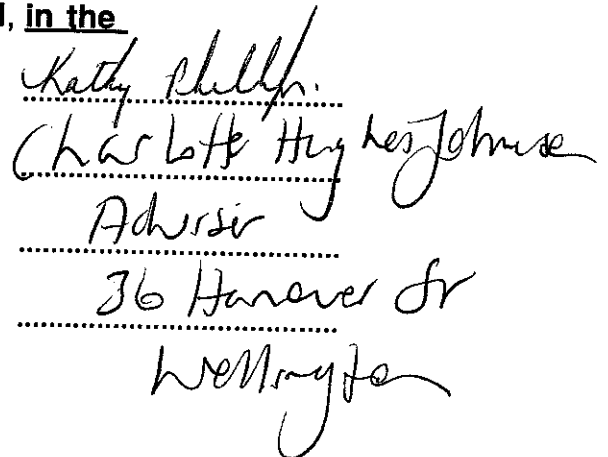 l, in the
Kathy Phillips.
Charlotte Hughes Johnse
Advisir
36 Hanover Sr
Wellington